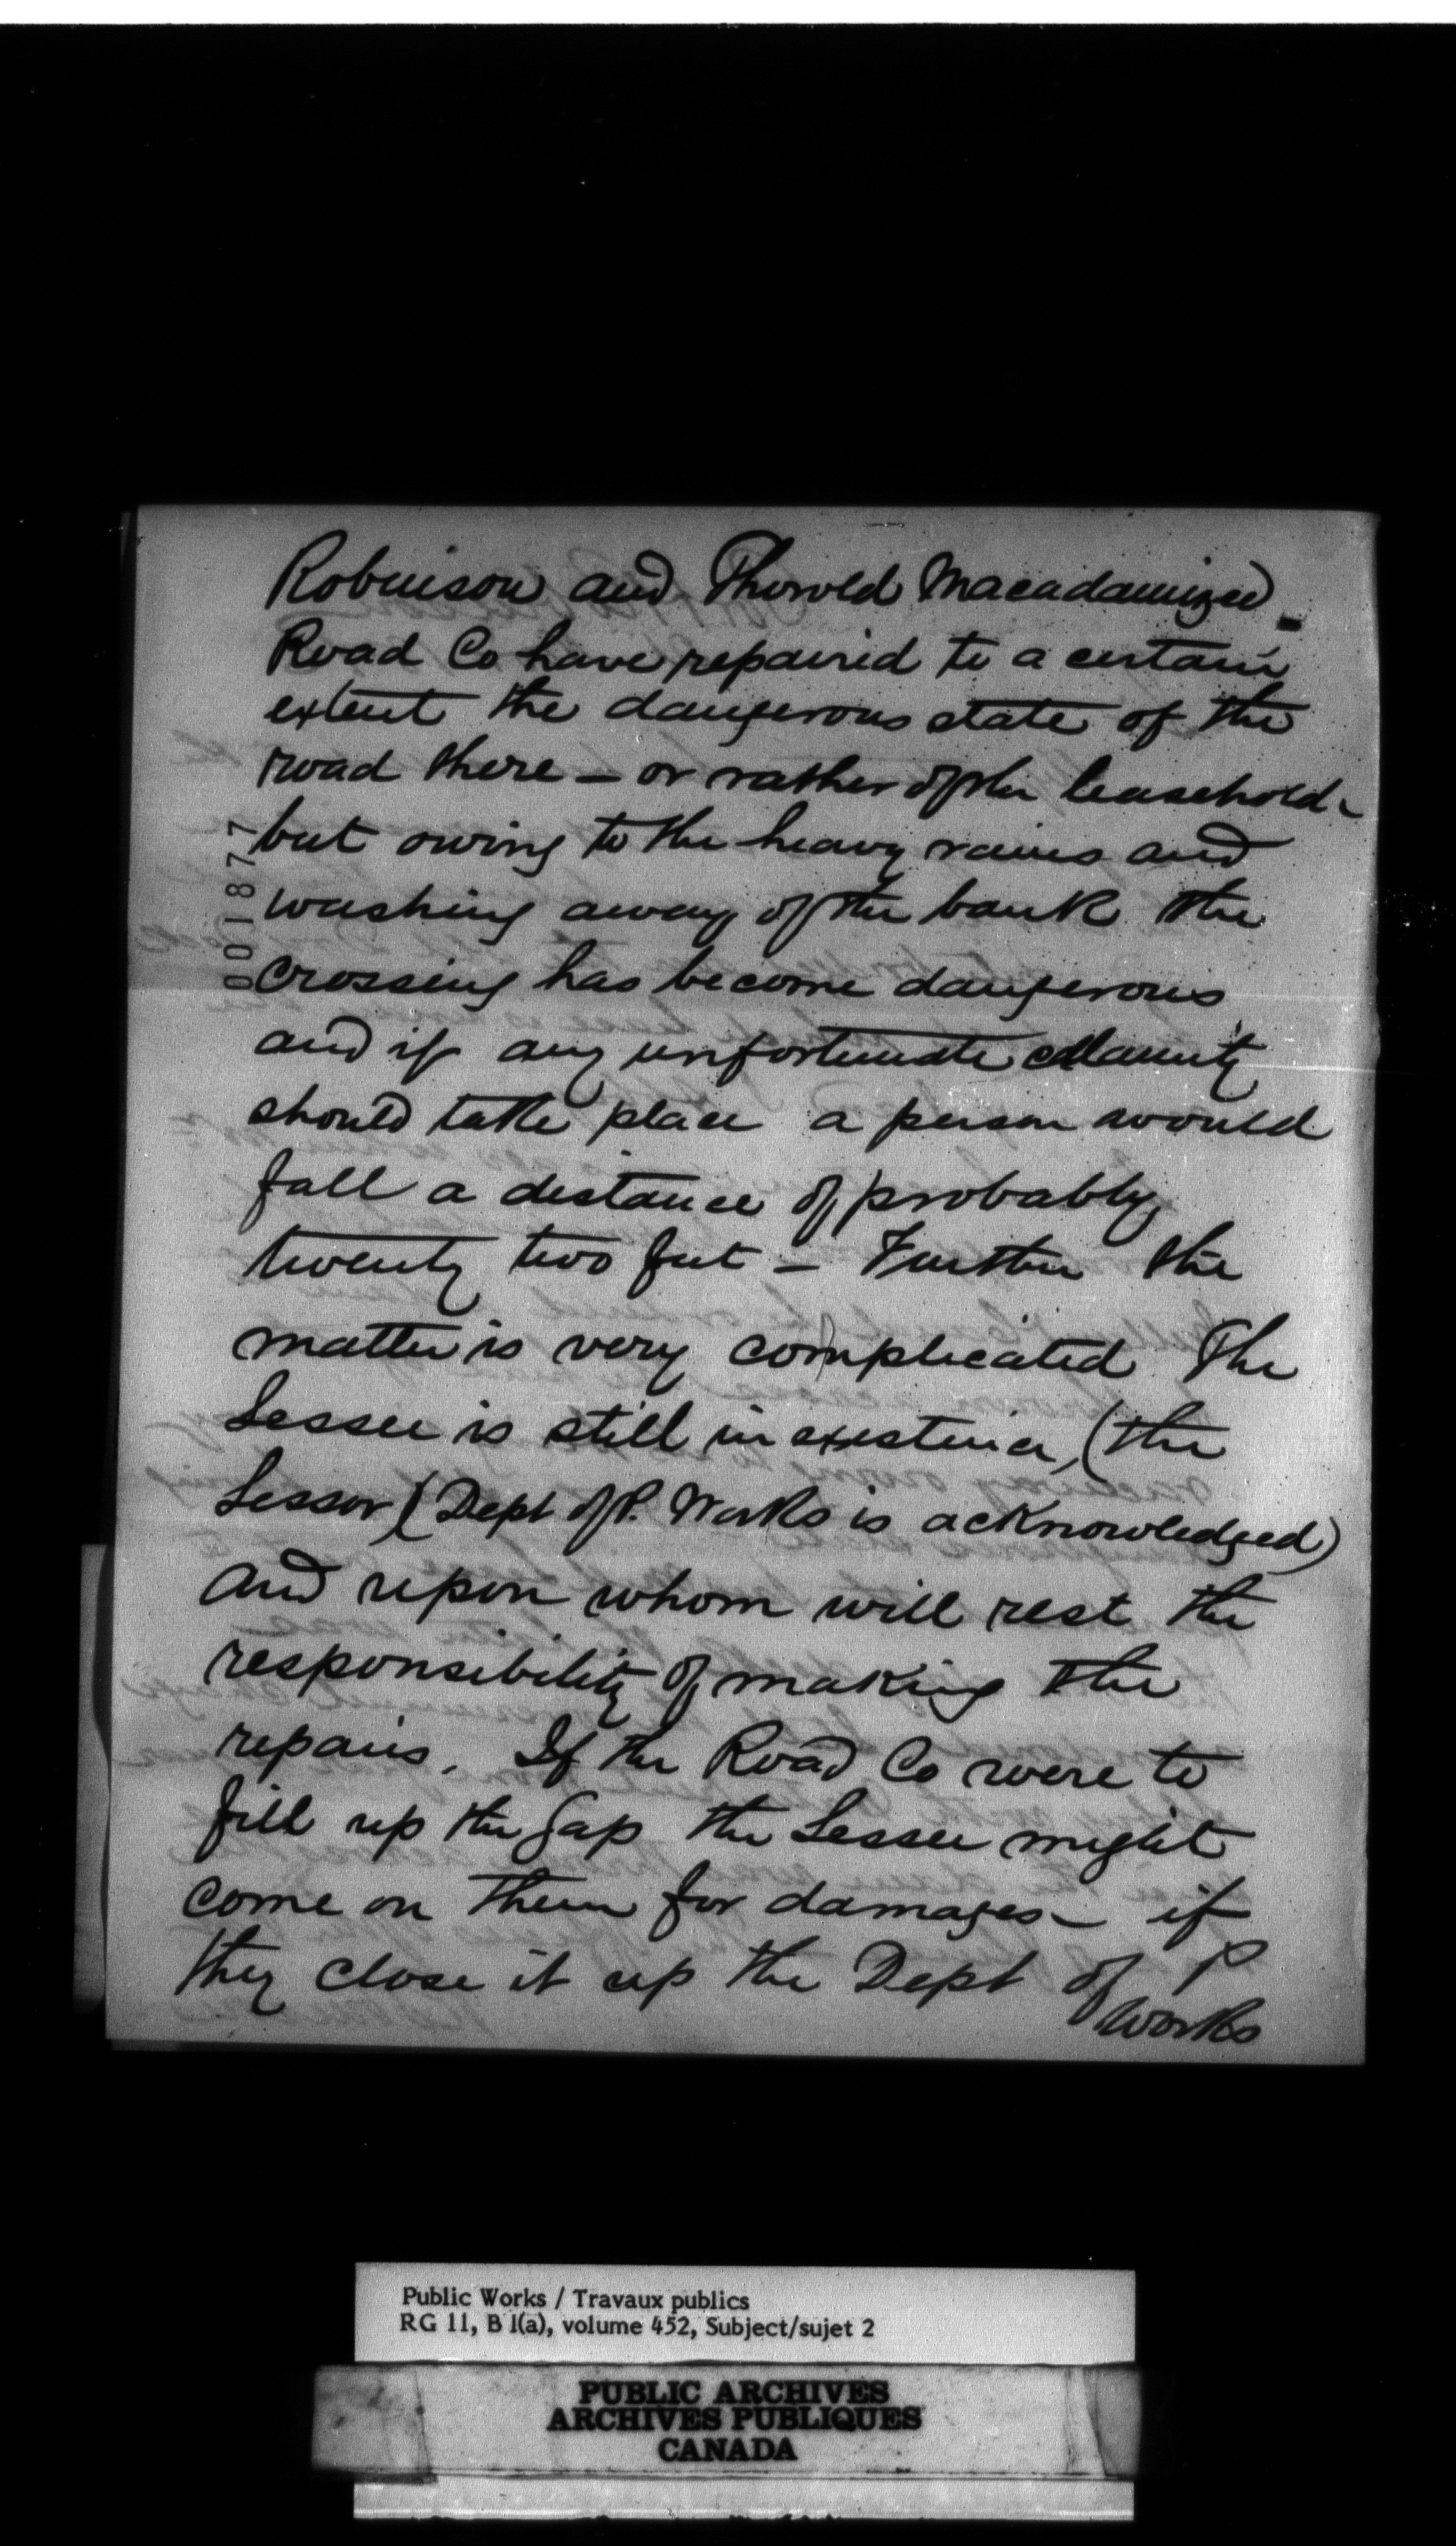 Robinson and Thorold Macadamized
Road Co have repaired to a certain
extent the dangerous state of the
road there – or rather of the leasehold –
but owing to the heavy rains and
washing away of the bank the
crossing has become dangerous
and if any unfortunate calamity
should take place a person would
fall a distance of probably
twenty two feet – Further the
matter is very complicated The
Lessee is still in existence, (the
Lessor (Dept of P. Works is acknowledged)
and upon whom will rest the
responsibility of making the
repairs. If the Road Co were to
fill up the Gap the Lessee might
come on them for damages – if
they close it up the Dept of P
Works
001877
Public Works / Travaux publics
RG 11, B 1(a), volume 452, Subject/sujet 2
PUBLIC ARCHIVES
ARCHIVES PUBLIQUES
CANADA